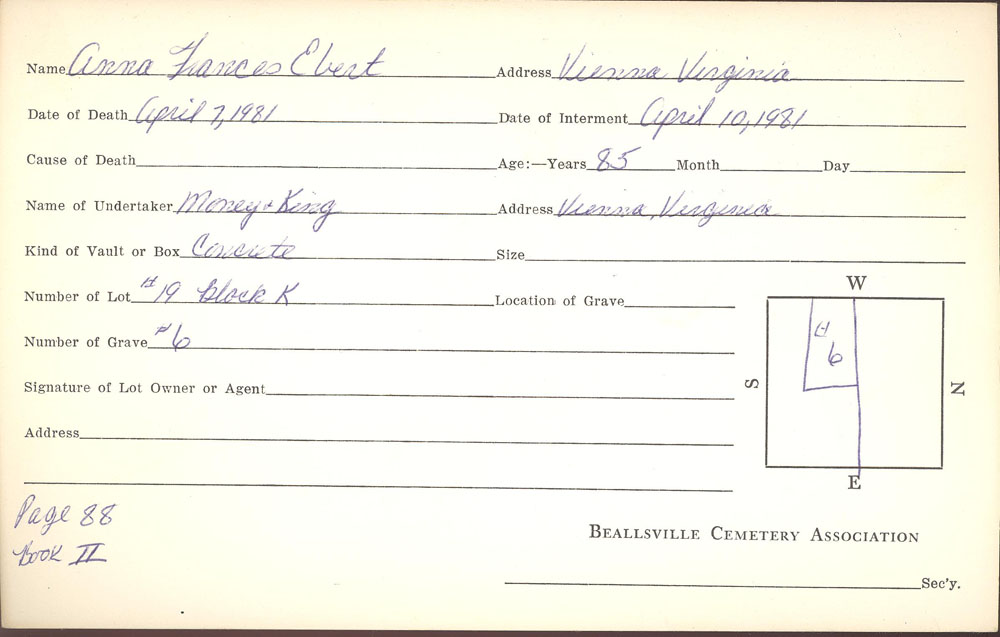 Name Anna Frances Ebert Address Vienna Virginia
Date of Death April 7, 1981 Date of Interment April 10, 1981
Cause of Death Age:—Years 85 Month Day
Name of Undertaker Money & King Address Vienna, Virginia
Kind of Vault or Box Concrete Size
Number of Lot #19 Block K Location of Grave
Number of Grave #6
Signature of Lot Owner or Agent
Address
W
S
# 6
N
E
Page 88
Book II
BEALLSVILLE CEMETERY ASSOCIATION
Sec'y.